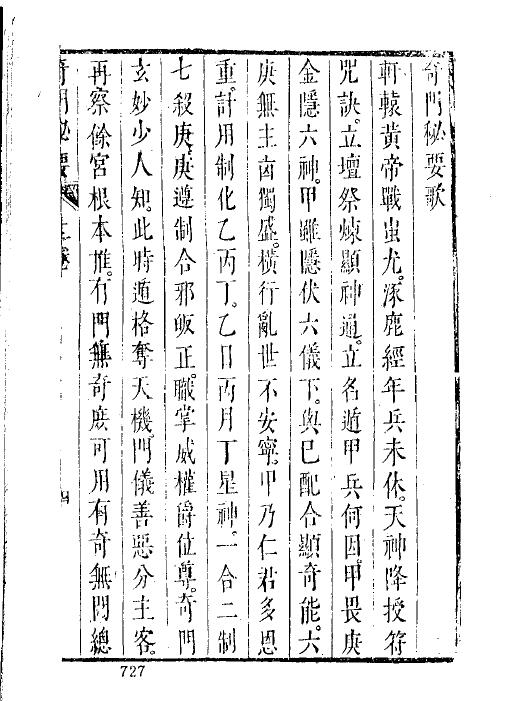 奇門秘要歌
軒轅黃帝戰蚩尤。涿鹿經年兵未休。天神降授符
咒訣。立壇祭煉顯神通。立名遁甲兵何因。甲畏庚
金隱六神。甲雖隱伏六儀下。與己配合顯奇能。六
庚無主卤獨盛。橫行亂世不安寧。甲乃仁君多恩
重。計用制化乙丙丁。乙日丙月丁星神。一合二制
七殺庚。庚遵制合邪皈正。職掌威權爵位尊。奇門
玄妙少人知。此時遁格奪天機。門儀善惡分主客。
再察餘宮根本推。有門無奇庶可用有奇無門總
奇門秘要 上卷 四
727